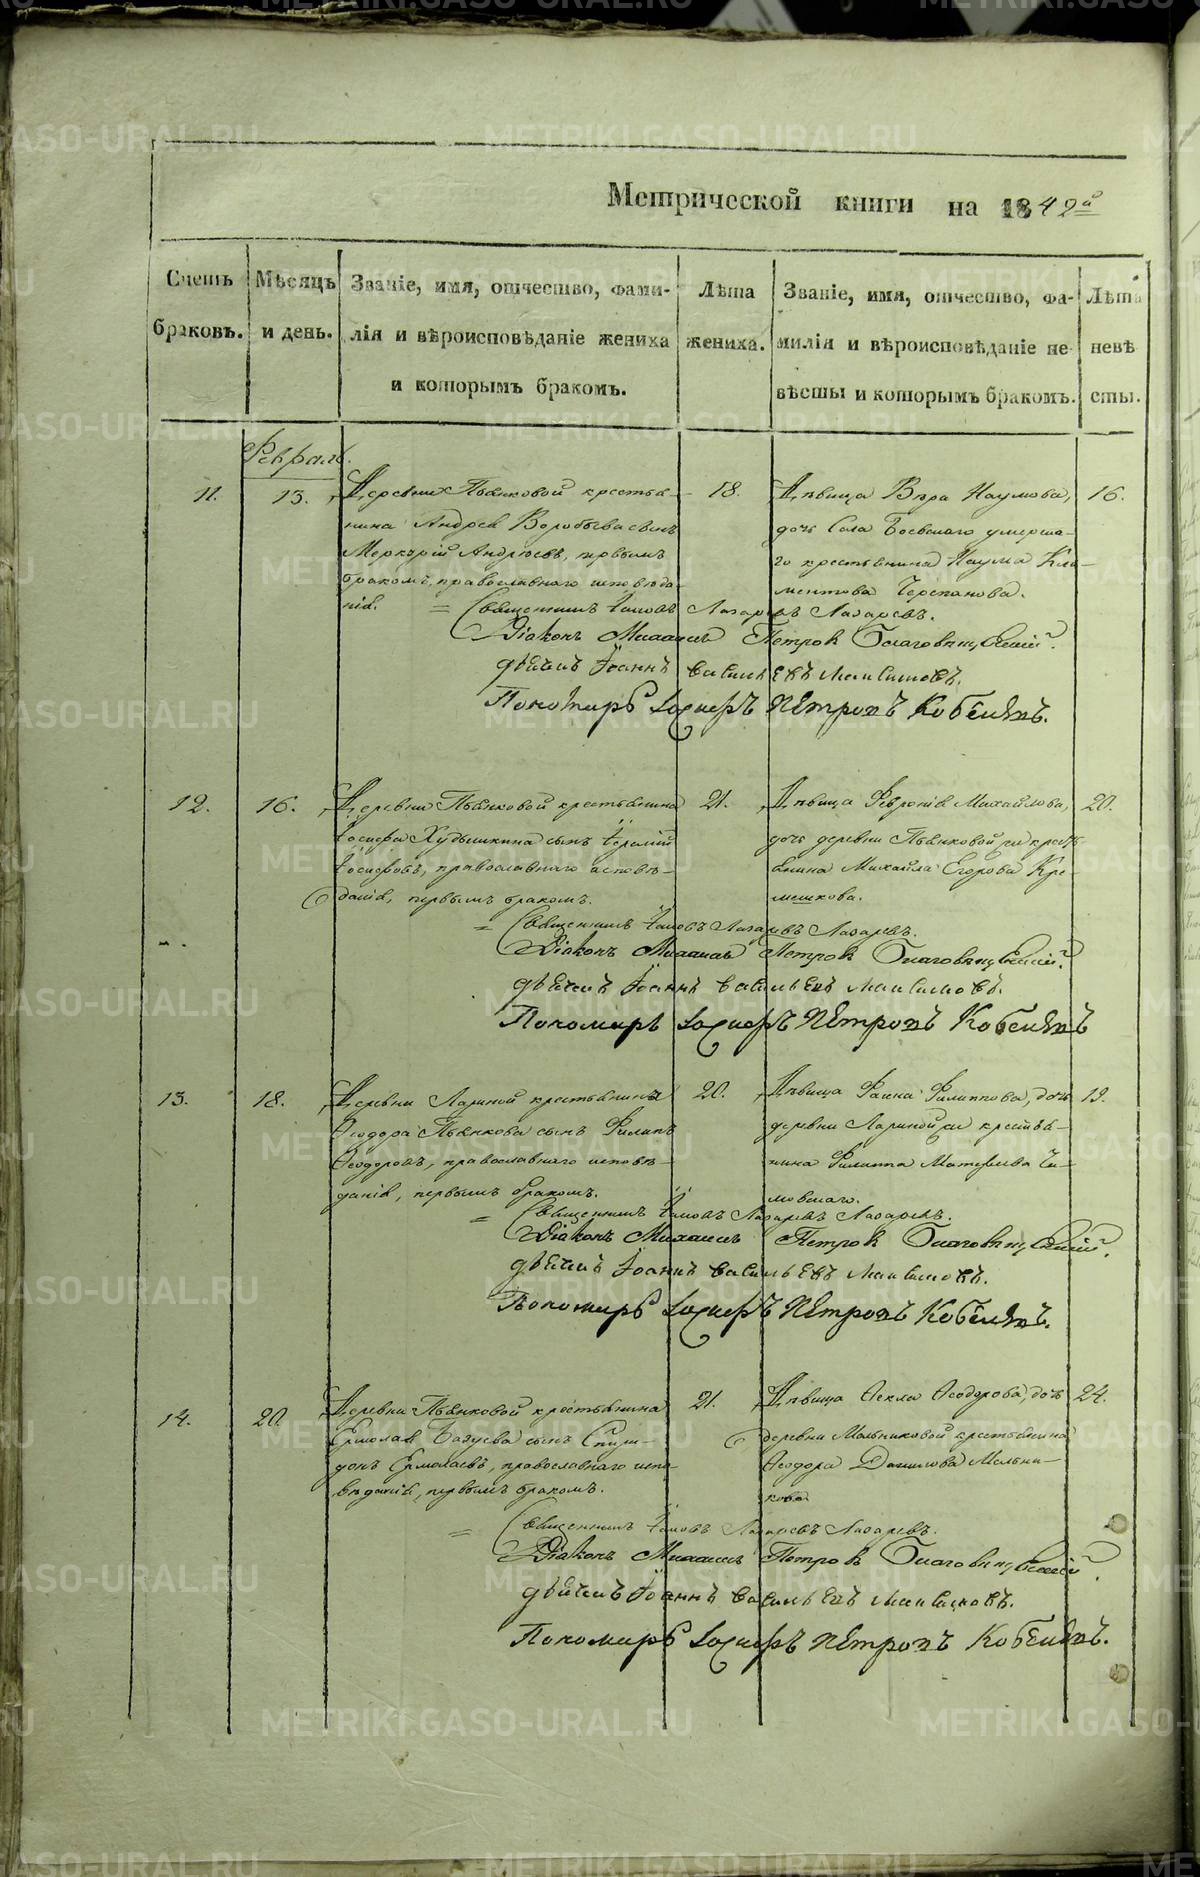 Метрической книги на 1842й
Счетъ браковъ.
Мѣсяцъ и день.
Званіе, имя, отчество, фами-
лія и вѣроисповѣданіе жениха
и которымъ бракомъ.
Лѣта жениха.
Званіе, имя, отчество, фа-
милія и вѣроисповѣданіе не-
вѣсты и которымъ бракомъ.
Лѣта невѣ
сты.
Февраль.
11. 13.
Деревни Пьянковой крестья-
нина Андрея Воробьева сынъ
Меркурій Андреевъ, первымъ
бракомъ, православнаго исповѣда-
нія.
18.
Дѣвица Вѣра Наумова,
дочь Села Боевскаго умерша-
го крестьянина Наума Кли-
ментова Черепанова.
16.
Священникъ Іаковъ Лазаревъ Лазаревъ.
Діаконъ Михаилъ Петровъ Благовѣщенскій.
дьячекъ Іоаннъ Васильевъ Максимовъ.
Пономарь Петровъ
12. 16.
Деревни Пьянковой крестьянина
Іосифа Худышкина сынъ
Іосифовъ, православнаго исповѣ-
данія, первымъ бракомъ.
21.
Дѣвица Февронія Михайлова,
дочь деревни Пьянковой же кресть-
янина Михаила Егорова Кре-
мешкова.
20.
Священникъ Іаковъ Лазаревъ Лазаревъ.
Діаконъ Михаилъ Петровъ Благовѣщенскій.
дьячекъ Іоаннъ Васильевъ Максимовъ.
Пономарь Петровъ
13. 18.
Деревни Лариной крестьянина
Ѳеодора Пьянкова сынъ Филипъ
Ѳеодоровъ, православнаго исповѣ-
данія, первымъ бракомъ.
20.
Дѣвица Фаина Филиппова, дочь
деревни Лариной же крестья-
нина Филиппа Матвѣева
19.
Священникъ Іаковъ Лазаревъ Лазаревъ.
Діаконъ Михаилъ Петровъ Благовѣщенскій.
дьячекъ Іоаннъ Васильевъ Максимовъ.
Пономарь Петровъ
14. 20.
Деревни Пьянковой крестьянина
Ермолая сынъ Спири-
донъ Ермолаевъ, православнаго испо-
вѣданія, первымъ бракомъ.
21.
Дѣвица Ѳекла Ѳеодорова, дочь
деревни Мельниковой крестьянина
Ѳеодора Данилова Мельни-
кова
24.
Священникъ Іаковъ Лазаревъ Лазаревъ.
Діаконъ Михаилъ Петровъ Благовѣщенскій.
дьячекъ Іоаннъ Васильевъ Максимовъ.
Пономарь Петровъ
METRIKI.GASO-URAL.RU